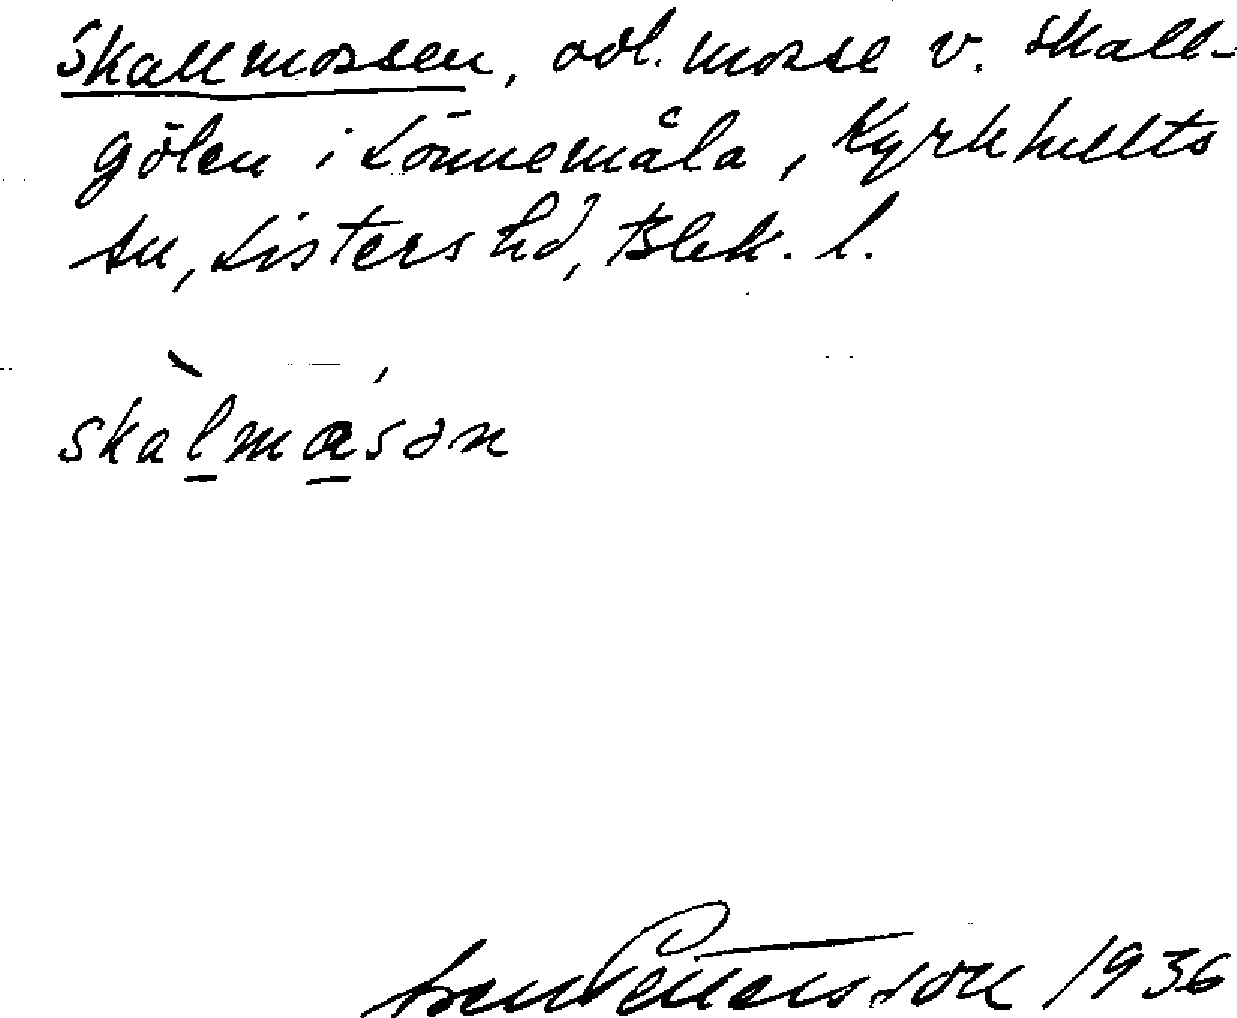 Skallmossen, odl. mosse v. Skall-
gölen i Lönnemåla, Kyrkhults
sn, Listers hd, Blek. l.
skàlmɑ́sən
Sven Pettersson 1936